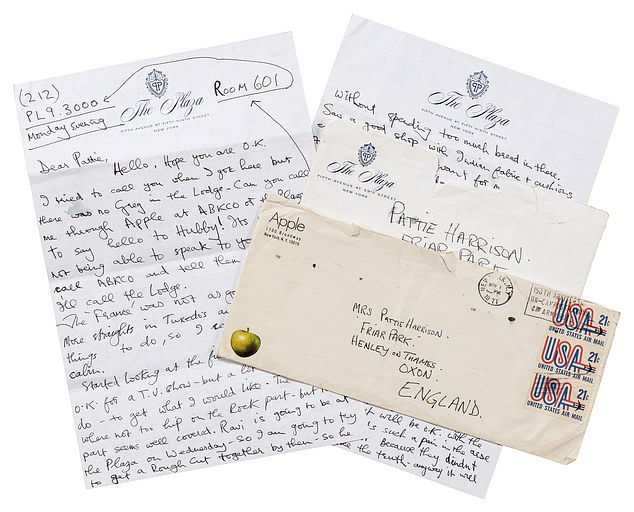 (212)
PL9.3000
Monday Evening
ROOM 601
The Plaza
FIFTH AVENUE AT FIFTY-NINTH STREET
NEW YORK
Dear Pattie,
Hello, Hope you are O.K.
I tried to call you when I got here but
there was no Grey in the Lodge - Can you call
me through Apple at ABKCO or the Plaza
to say hello to Hubby! Its
not being able to speak to yo
call ABKCO and tell them
I'll call the Lodge.
The France was not as go
More straights in Tuxedos an
things to do, so I
calm.
Started looking at the f
O.K. for a T.V. show - but a lot
do - to get what I would like. The
where not too hip on the Rock part - but
part seems well covered. Ravi is going to be at
the Plaza on Wednesday - so I am going to try
to get a Rough Cut together by then - so he
The Plaza
FIFTH AVENUE AT FIFTY-NINTH STREET
NEW YORK
without spending too much bread in there.
Saw a good shop with Indian fabric + cushions
want for a
it will be O.K. with the
is such a pain in the arse
because they didn't
the truth - anyway it will
The Plaza
FIFTH AVENUE AT 59TH STREET
PATTIE HARRISON.
FRIAR PARK
Apple
1700 Broadway
New York, N.Y. 10019
MRS PATTIE HARRISON.
FRIAR PARK.
HENLEY ON THAMES
OXON.
ENGLAND.
PM
1971
USA 21c
UNITED STATES AIR MAIL
USA 21c
UNITED STATES AIR MAIL
USA 21c
UNITED STATES AIR MAIL